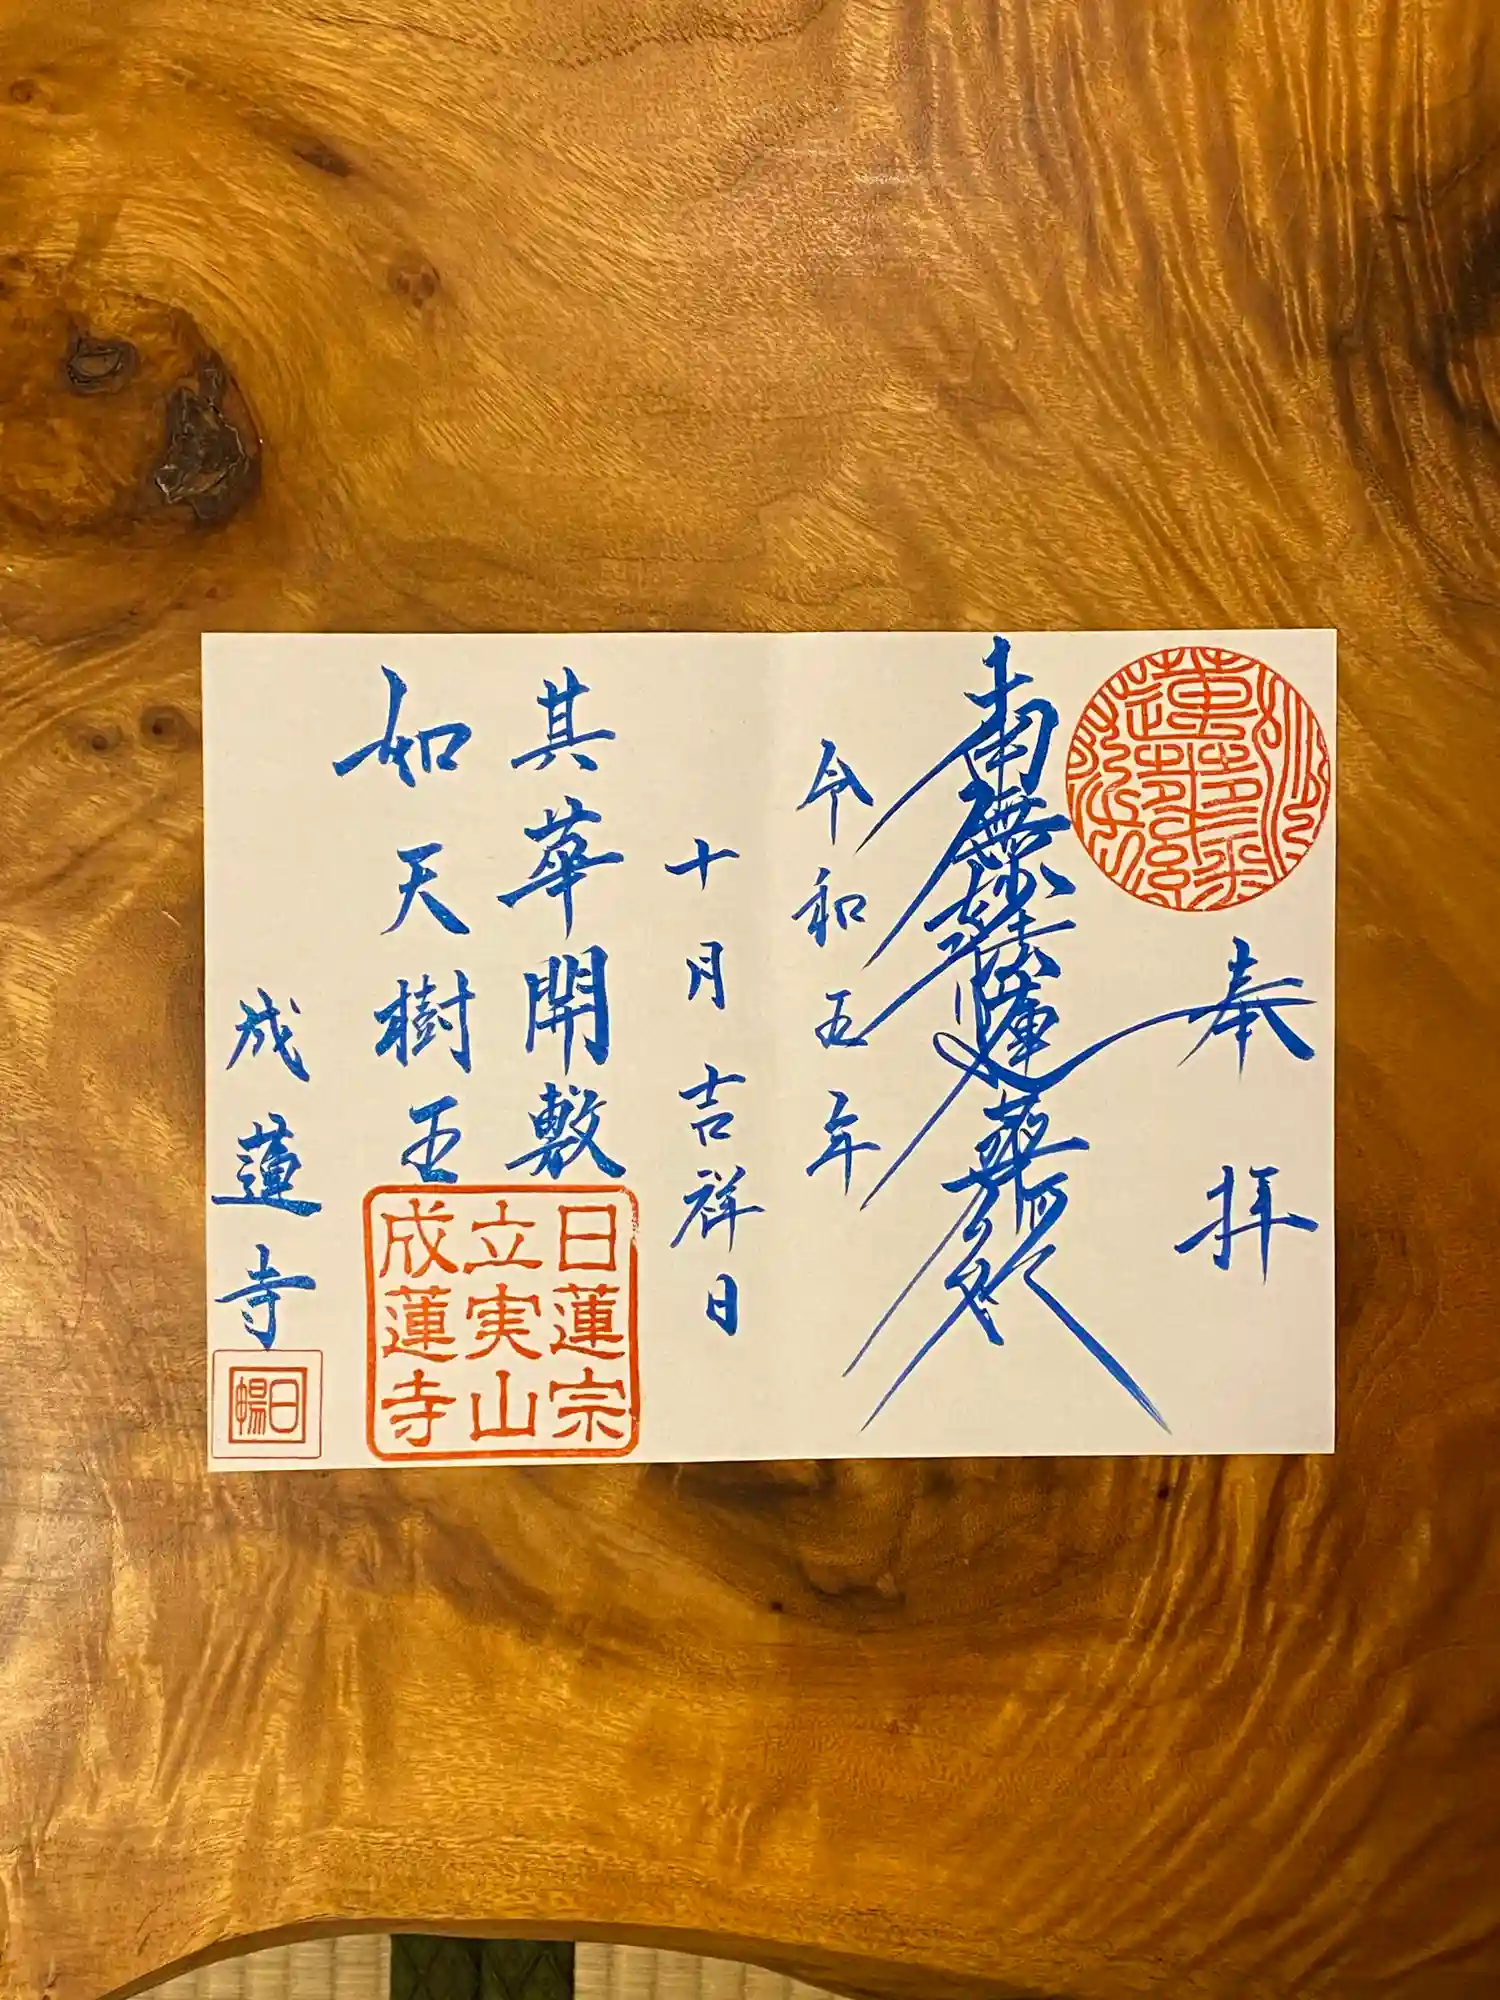 奉拝
南無妙法蓮華経
令和五年
十月吉祥日
其華開敷
如天樹王
日蓮宗
立実山
成蓮寺
成蓮寺
日暢